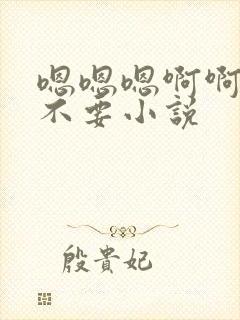 嗯嗯嗯啊啊
不要小说
殷貴妃